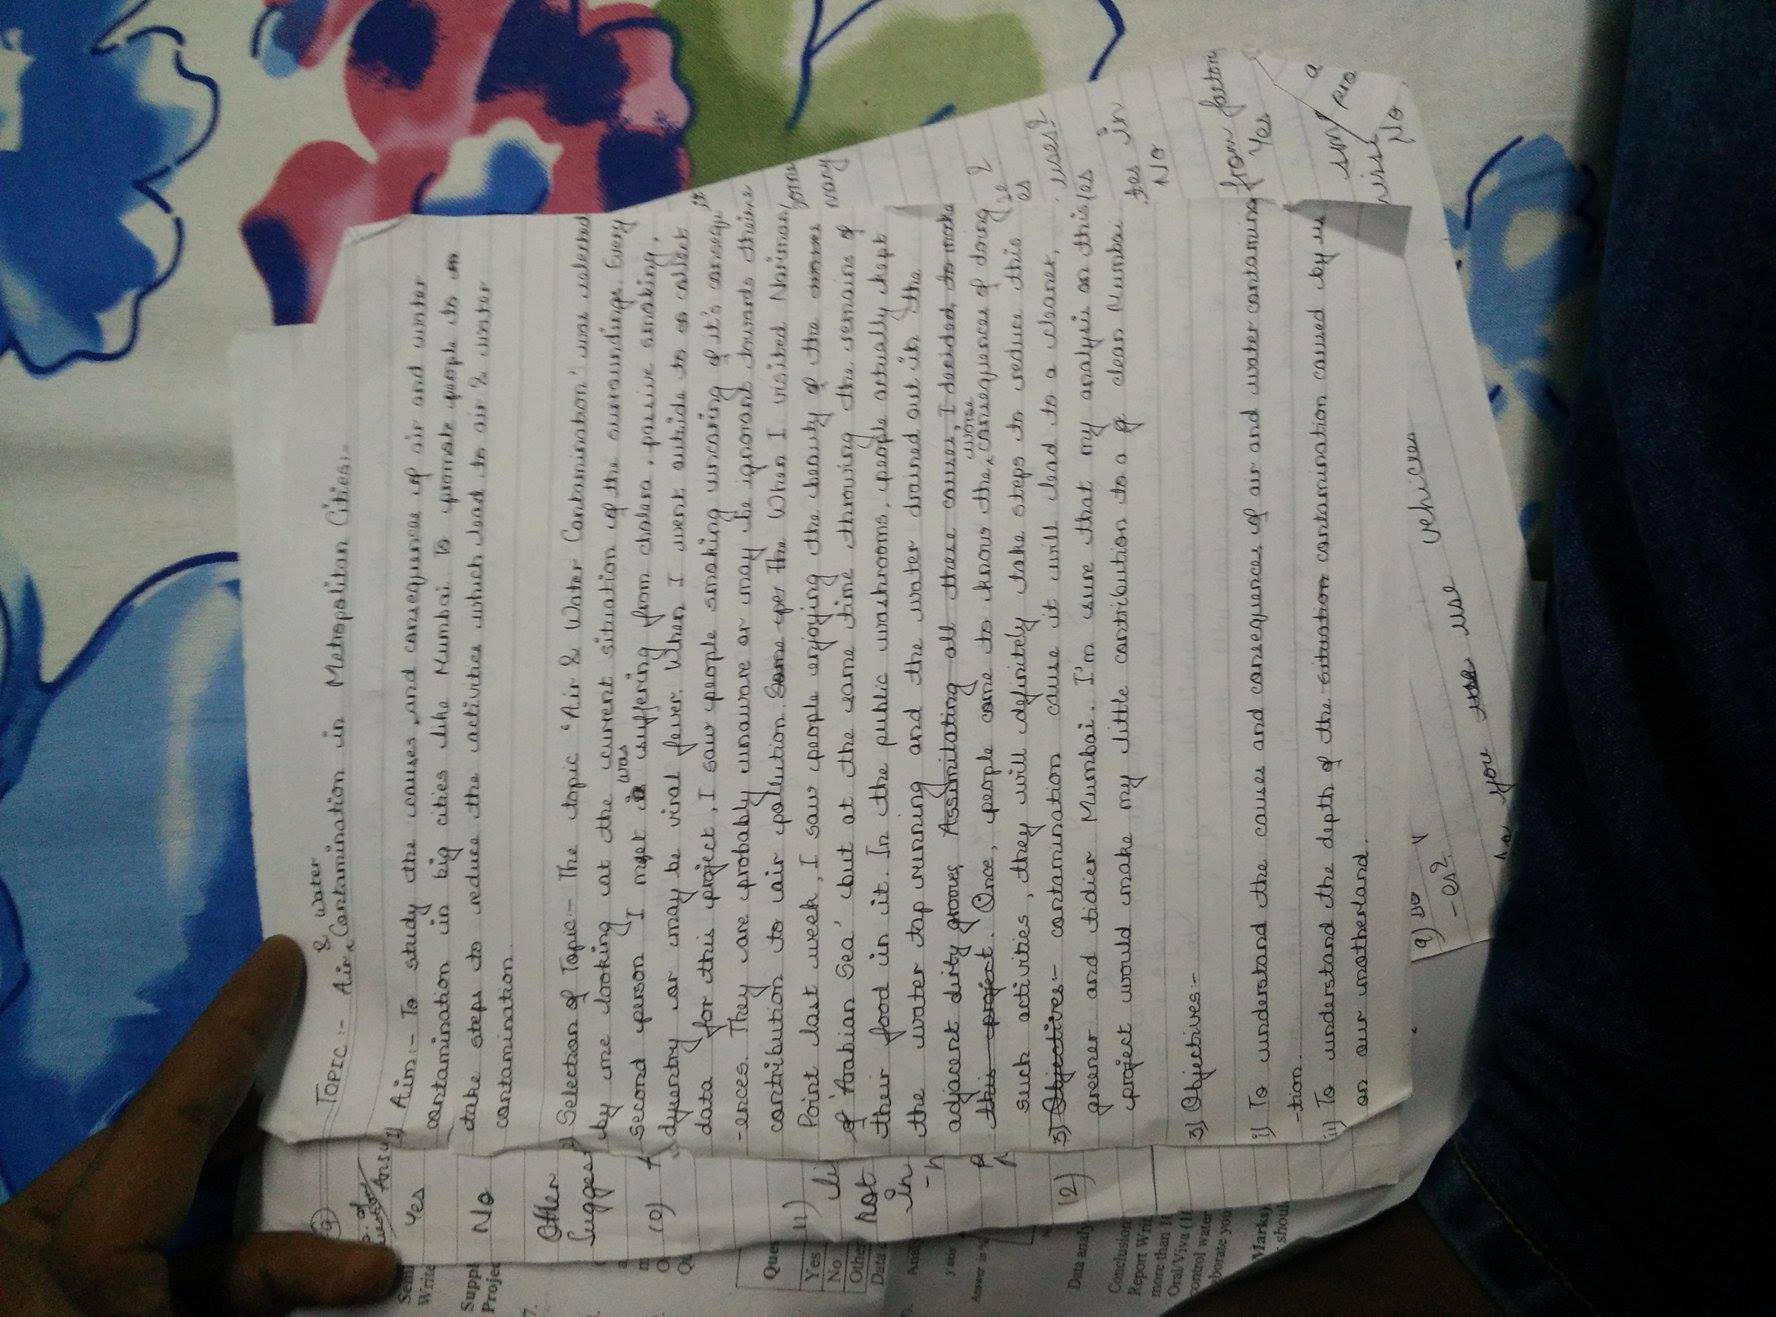 TOPIC :- Air & Water Contamination in Metropolitan Cities:-
1) Aim:- To study the causes, and consequences of air and water
contamination in big cities like Mumbai. To promote people to
take steps to reduce the activities which lead to air & water
contamination.
Selection of Topic:- The topic 'Air & Water Contamination' was selected
by me looking at the current situation of the surroundings. Every
second person I met was suffering from cholera, passive smoking,
dysentry or may be viral fever. When I went outside to collect
data for this project, I saw people smoking uncaring of it's consequ
-ences. They are probably unaware or may be ignorant towards their
contribution to air pollution. Some per The When I visited Nariman
Point last week, I saw people enjoying the beauty of the
of 'Arabian Sea' but at the same time throwing the remains of
their food in it. In the public washrooms, people actually kept
the water tap running and the water drained out in the
adjacent dirty grooves. Assimilating all these causes, I decided to make
this project. Once, people come to know the worse consequences of doing
such activities, they will definitely take steps to reduce this
3) Objectives:- contamination cause it will lead to a cleaner,
greener and tidier Mumbai. I'm sure that my analysis on this
project would make my little contribution to a clean Mumbai.
3) Objectives:-
i) To understand the causes and consequences of air and water contamina
-tion.
ii) To understand the depth of the situation contamination caused by us
on our motherland.
Yes
No
Other
Suggest
10)
11)
not
in
12)
Ques
Yes
No
Othe
Data
Data analy
Conclusion
Report Writ
more than 10
Oral/Viva
control water
Marks)
shoul
Write
Suppl
Projec
many
uses?
as
No
from factory
Yes
No
9)
-es?
vehicles
you use use